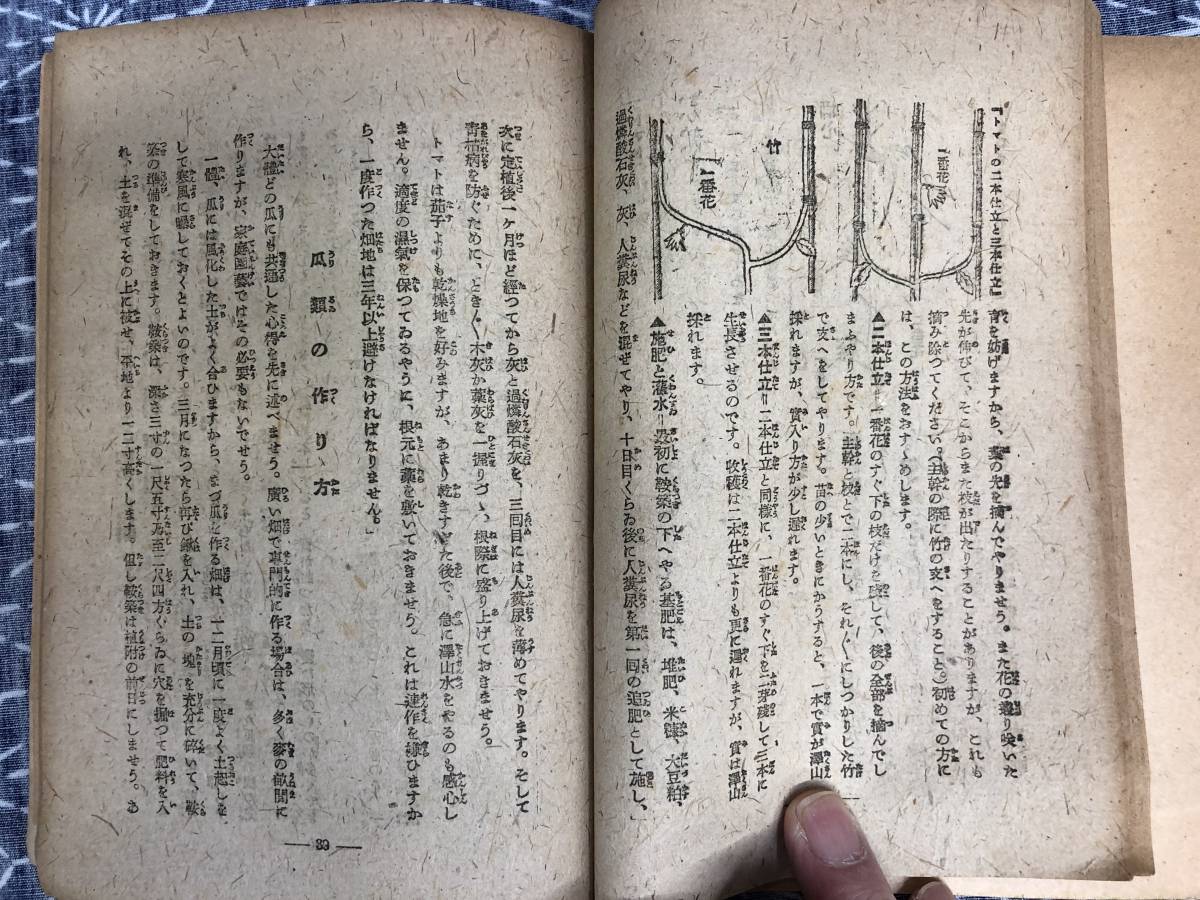 『トマトの二本仕立と三本仕立』
一番花
竹
一番花
育を妨げますから、葉の先を摘んでやりませう。また花の着り咲いた
先が伸びて、そこからまた枝が出たりすることがありますが、これも
摘み除つてください。(主幹の際に竹の支へをすること。)初めての方に
は、この方法をおすゝめします。
▲二本仕立=一番花のすぐ下の枝だけを残して、後の全部を摘んでし
まふやり方です。主幹と枝とで二本にし、それ〴〵にしつかりした竹
で支へをしてやります。苗の少いときにかうすると、一本で實が澤山
採れますが、實入り方が少し遅れます。
▲三本仕立=二本仕立と同様に、一番花のすぐ下を二芽残して三本に
生長させるのです。收穫は二本仕立よりも更に遅れますが、實は澤山
採れます。
▲施肥と灌水=最初に鞍築の下へやる基肥は、堆肥、米糠、大豆粕、
過燐酸石灰、灰、人糞尿などを混ぜてやり、十日目くらゐ後に人糞尿を第一回の追肥として施し、
次に定植後一ケ月ほど經つてから灰と過燐酸石灰を、三回目には人糞尿を薄めてやります。そして
青枯病を防ぐために、とき〴〵木灰か藁灰を一握りづゝ、根際に盛り上げておきませう。
トマトは茄子よりも乾燥地を好みますが、あまり乾きすぎた後で、急に澤山水をやるのも感心し
ません。適度の濕氣を保つてゐるやうに、根元に藁を敷いておきませう。これは連作を嫌ひますか
ら、一度作つた畑地は三年以上避けなければなりません。」
瓜類の作り方
大體どの瓜にも共通した心得を先に述べませう。廣い畑で専門的に作る場合は、多く麥の畝間に
作りますが、家庭園藝ではその必要もないでせう。
一體、瓜には風化した土がよく合ひますから、まづ瓜を作る畑は、十二月頃に一度よく土起しを
して寒風に曝しておくとよいのです。三月になつたら再び鍬を入れ、土の塊を充分に碎いて、鞍
築の準備をしておきます。鞍築は、深さ三寸の一尺五寸乃至二尺四方ぐらゐに穴を掘つて肥料を入
れ、土を混ぜてその上に被せ、平地より一二寸高くします。但し鞍築は植附の前日にしませう。あ
— 39 —